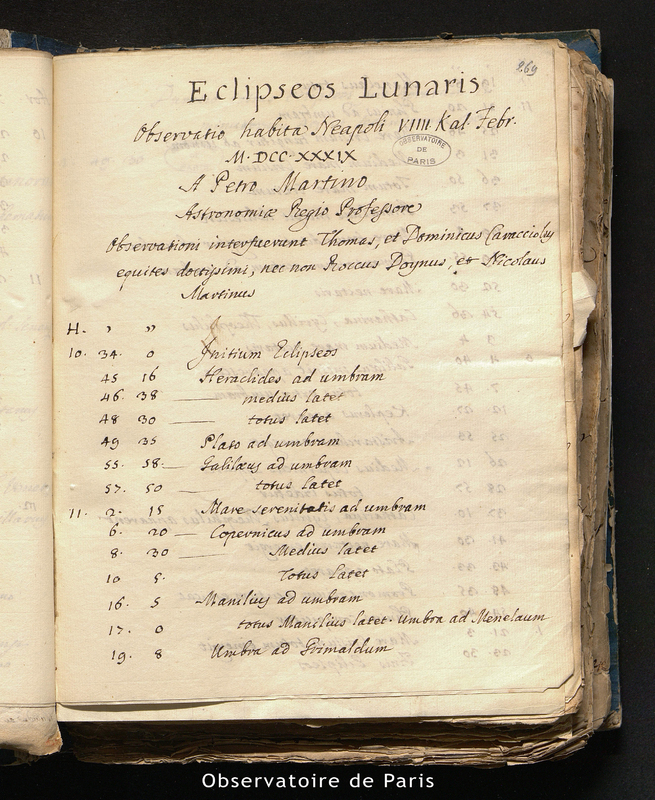 269
Eclipseos Lunaris
Observatio habita Neapoli VIIII Kal Febr.
M·DCC·XXXIX
OBSERVATOIRE
DE
PARIS
A Petro Martino
Astronomiæ Regio Professore
Observationi interfuerunt Thomas, et Dominicus Caracciolus
equites doctissimi, nec non Roccus Doynus, et Nicolaus
Martinus
H. ' ''
10. 34. 0 Initium Eclipseos
45 16 Heraclides ad umbram
46. 38 — medius latet
48 30 — totus latet
49 35 Plato ad umbram
55. 58. — Galilæus ad umbram
57. 50 — totus latet
11. 2. 15 Mare serenitatis ad umbram
6. 20 — Copernicus ad umbram
8. 30 — Medius latet
10 5. Totus latet
16. 5 Manilius ad umbram
17. 0 totus Manilius latet. umbra ad Menelaum
19. 8 Umbra ad Grimaldum
Observatoire de Paris